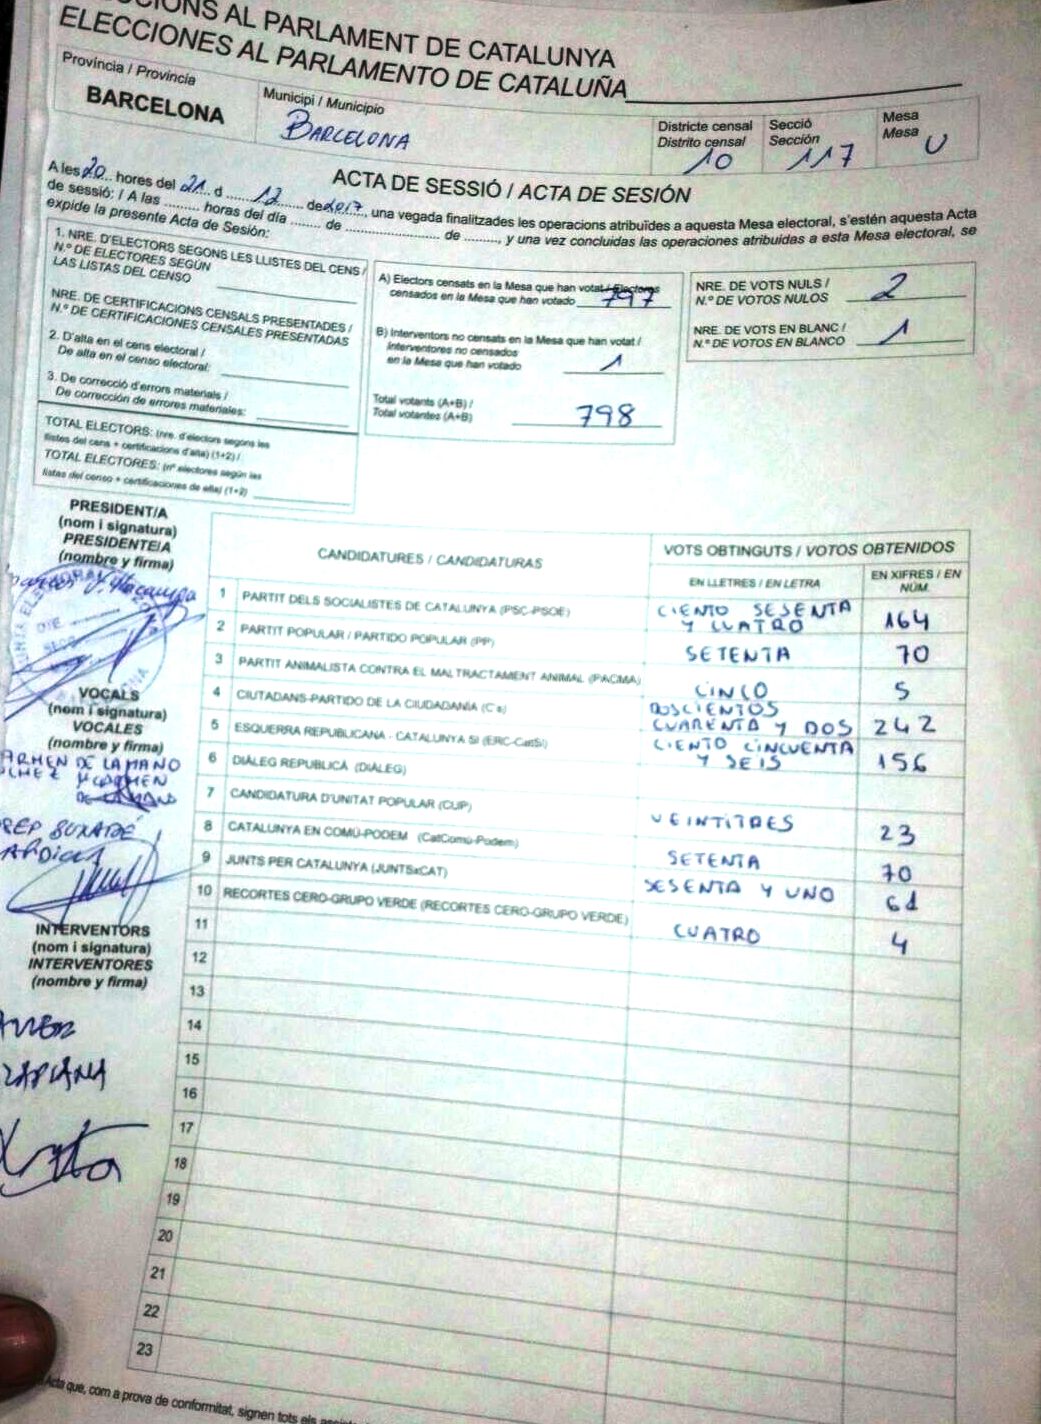 CIONS AL PARLAMENT DE CATALUNYA
ELECCIONES AL PARLAMENTO DE CATALUÑA
Província / Provincia
BARCELONA
Municipi / Municipio
BARCELONA
Districte censal
Distrito censal
10
Secció
Sección
117
Mesa
Mesa
U
ACTA DE SESSIÓ / ACTA DE SESIÓN
A les 20 hores del 21 d 12 de 2017, una vegada finalitzades les operacions atribuïdes a aquesta Mesa electoral, s'estén aquesta Acta
de sessió: / A las ......... horas del día ........ de ........................ de ........., y una vez concluidas las operaciones atribuidas a esta Mesa electoral, se
expide la presente Acta de Sesión:
1. NRE. D'ELECTORS SEGONS LES LLISTES DEL CENS /
N.º DE ELECTORES SEGÚN
LAS LISTAS DEL CENSO
NRE. DE CERTIFICACIONS CENSALS PRESENTADES /
N.º DE CERTIFICACIONES CENSALES PRESENTADAS
2. D'alta en el cens electoral /
De alta en el censo electoral:
3. De correcció d'errors materials /
De corrección de errores materiales:
TOTAL ELECTORS: (nre. d'electors segons les
llistes del cens + certificacions d'alta) (1+2) /
TOTAL ELECTORES: (nº electores según las
listas del censo + certificaciones de alta) (1+2)
A) Electors censats en la Mesa que han votat / Electores
censados en la Mesa que han votado 797
B) Interventors no censats en la Mesa que han votat /
Interventores no censados
en la Mesa que han votado 1
Total votants (A+B) /
Total votantes (A+B) 798
NRE. DE VOTS NULS /
N.º DE VOTOS NULOS 2
NRE. DE VOTS EN BLANC /
N.º DE VOTOS EN BLANCO 1
PRESIDENT/A
(nom i signatura)
PRESIDENTE/A
(nombre y firma)
VOCALS
(nom i signatura)
VOCALES
(nombre y firma)
ARMEN DE LA MANO
INTERVENTORS
(nom i signatura)
INTERVENTORES
(nombre y firma)
ZAPLANA
CANDIDATURES / CANDIDATURAS
VOTS OBTINGUTS / VOTOS OBTENIDOS
EN LLETRES / EN LETRA
EN XIFRES / EN
NÚM.
1 PARTIT DELS SOCIALISTES DE CATALUNYA (PSC-PSOE) CIENTO SESENTA
Y CUATRO 164
2 PARTIT POPULAR / PARTIDO POPULAR (PP) SETENTA 70
3 PARTIT ANIMALISTA CONTRA EL MALTRACTAMENT ANIMAL (PACMA) CINCO 5
4 CIUTADANS-PARTIDO DE LA CIUDADANÍA (C's) DOSCIENTOS
CUARENTA Y DOS 242
5 ESQUERRA REPUBLICANA - CATALUNYA SÍ (ERC-CatSí) CIENTO CINCUENTA
Y SEIS 156
6 DIÀLEG REPUBLICÀ (DIÀLEG)
7 CANDIDATURA D'UNITAT POPULAR (CUP) VEINTITRES 23
8 CATALUNYA EN COMÚ-PODEM (CatComú-Podem) SETENTA 70
9 JUNTS PER CATALUNYA (JUNTSxCAT) SESENTA Y UNO 61
10 RECORTES CERO-GRUPO VERDE (RECORTES CERO-GRUPO VERDE) CUATRO 4
11
12
13
14
15
16
17
18
19
20
21
22
23
Acta que, com a prova de conformitat, signen tots els